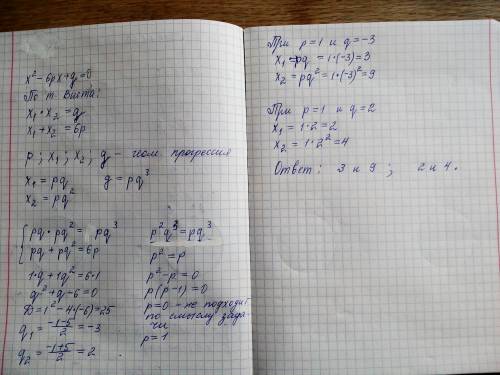 x² - 6px + q = 0
По т. Виета:
x₁ · x₂ = q
x₁ + x₂ = 6p
p ; x₁ ; x₂ ; q – геом. прогрессия
x₁ = pq    q = pq³
x₂ = pq²
{ pq · pq² = pq³
pq + pq² = 6p
1·q + 1q² = 6·1
q² + q - 6 = 0
D = 1² - 4·(-6) = 25
q₁ = (-1-5)/2 = -3
q₂ = (-1+5)/2 = 2
p²q³ = pq³
p² = p
p² - p = 0
p(p-1) = 0
p=0 – не подходит
по смыслу зада-
чи
p = 1
При p=1 и q=-3
x₁ = pq = 1·(-3) = 3
x₂ = pq² = 1·(-3)² = 9
При p=1 и q=2
x₁ = 1·2 = 2
x₂ = 1·2² = 4
Ответ: 3 и 9 ; 2 и 4.